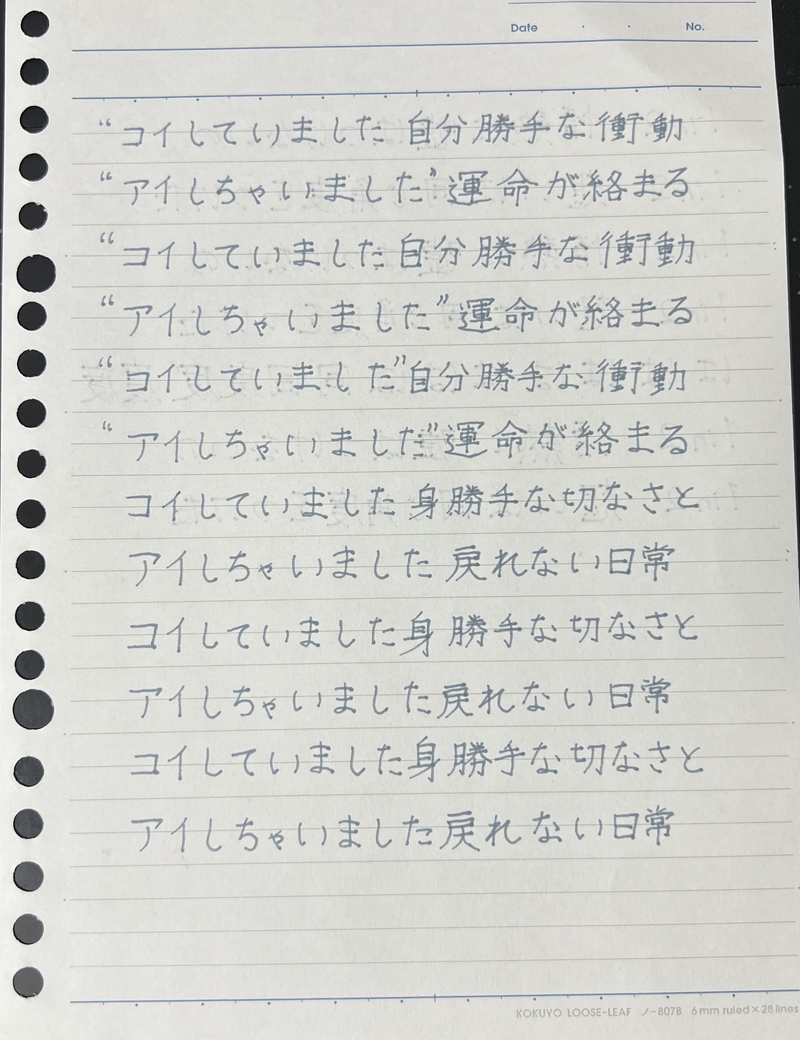 Date ・ ・ No.
“コイしていました 自分勝手な衝動
“アイしちゃいました”運命が絡まる
“コイしていました 自分勝手な衝動
“アイしちゃいました”運命が絡まる
“コイしていました”自分勝手な衝動
“アイしちゃいました”運命が絡まる
コイしていました 身勝手な切なさと
アイしちゃいました 戻れない日常
コイしていました身勝手な切なさと
アイしちゃいました戻れない日常
コイしていました身勝手な切なさと
アイしちゃいました戻れない日常
KOKUYO LOOSE-LEAF ノ-807B 6mm ruled×28lines